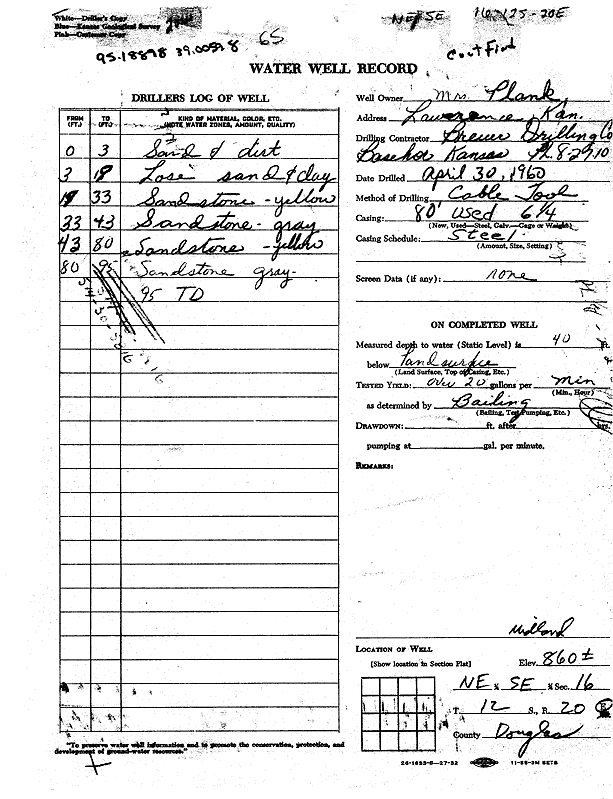 White—Driller's Copy
Blue—Kansas Geological Survey
Pink—Customer Copy
NE, SE 16 12S-20E
95.18898 39.00598 65
WATER WELL RECORD
DRILLERS LOG OF WELL
FROM (FT.) TO (FT.) KIND OF MATERIAL, COLOR, ETC. (NOTE WATER ZONES, AMOUNT, QUALITY)
0 3 Sand & dirt
3 18 Lose sand & clay
18 33 Sandstone - yellow
33 43 Sandstone - gray
43 80 Sandstone - yellow
80 95 Sandstone gray-
95 TD
Well Owner Mrs. Plank
Address Lawrence, Kan.
Drilling Contractor Brewer Drilling Co
Basehor Kansas Ph. 8-2910
Date Drilled April 30, 1960
Method of Drilling Cable Tool
Casing: 80' used 6 1/4
(New, Used—Steel, Galv.—Gage or Weight)
Casing Schedule: Steel
(Amount, Size, Setting)
Screen Data (if any): none
ON COMPLETED WELL
Measured depth to water (Static Level) is 40 ft.
below Land surface
(Land Surface, Top of Casing, Etc.)
TESTED YIELD: over 20 gallons per Min
(Min., Hour)
as determined by Bailing
(Bailing, Test Pumping, Etc.)
DRAWDOWN: ft. after hrs.
pumping at gal. per minute.
REMARKS:
Midland
LOCATION OF WELL
[Show location in Section Plat] Elev. 860±
NE ¼ SE ¼ Sec. 16
T. 12 S., R. 20 E
County Douglas
"To preserve water well information and to promote the conservation, protection, and
development of ground-water resources."